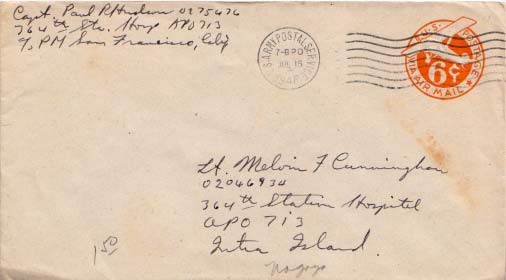 Capt. Paul P. Hudson 0275676
764th Sta. Hosp APO 713
c/o PM San Francisco, Calif
U.S. ARMY POSTAL SERVICE
7-8 PO
JUL 15
194
U.S. POSTAGE
6¢
VIA AIR MAIL
Lt. Melvin F Cunningham
02046934
364th Station Hospital
APO 713
Intra Island
Nagoya
150